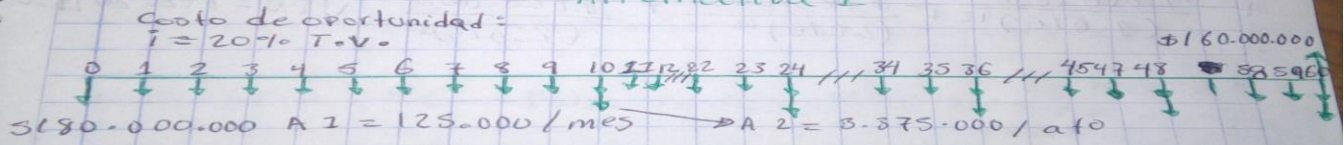 Costo de oportunidad:
i = 20% T.V.
$160.000.000
0 1 2 3 4 5 6 7 8 9 10 11 12 22 23 24 /// 34 35 36 /// 45 47 48 58 59 60
$180.000.000 A 1 = 125.000 / mes → A 2 = 3.375.000 / año